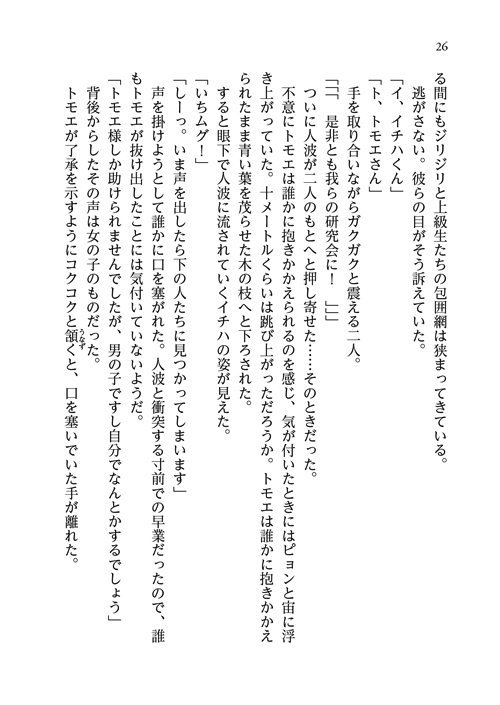 26
る間にもジリジリと上級生たちの包囲網は狭まってきている。
逃がさない。彼らの目がそう訴えていた。
「イ、イチハくん」
「ト、トモエさん」
手を取り合いながらガクガクと震える二人。
「「「是非とも我らの研究会に! 」」」
ついに人波が二人のもとへと押し寄せた……そのときだった。
不意にトモエは誰かに抱きかかえられるのを感じ、気が付いたときにはピョンと宙に浮
き上がっていた。十メートルくらいは跳び上がっただろうか。トモエは誰かに抱きかかえ
られたまま青い葉を茂らせた木の枝へと下ろされた。
すると眼下で人波に流されていくイチハの姿が見えた。
「いちムグ!」
「しーっ。いま声を出したら下の人たちに見つかってしまいます」
声を掛けようとして誰かに口を塞がれた。人波と衝突する寸前での早業だったので、誰
もトモエが抜け出したことには気付いていないようだ。
「トモエ様しか助けられませんでしたが、男の子ですし自分でなんとかするでしょう」
背後からしたその声は女の子のものだった。
トモエが了承を示すようにコクコクと頷うなずくと、口を塞いでいた手が離れた。